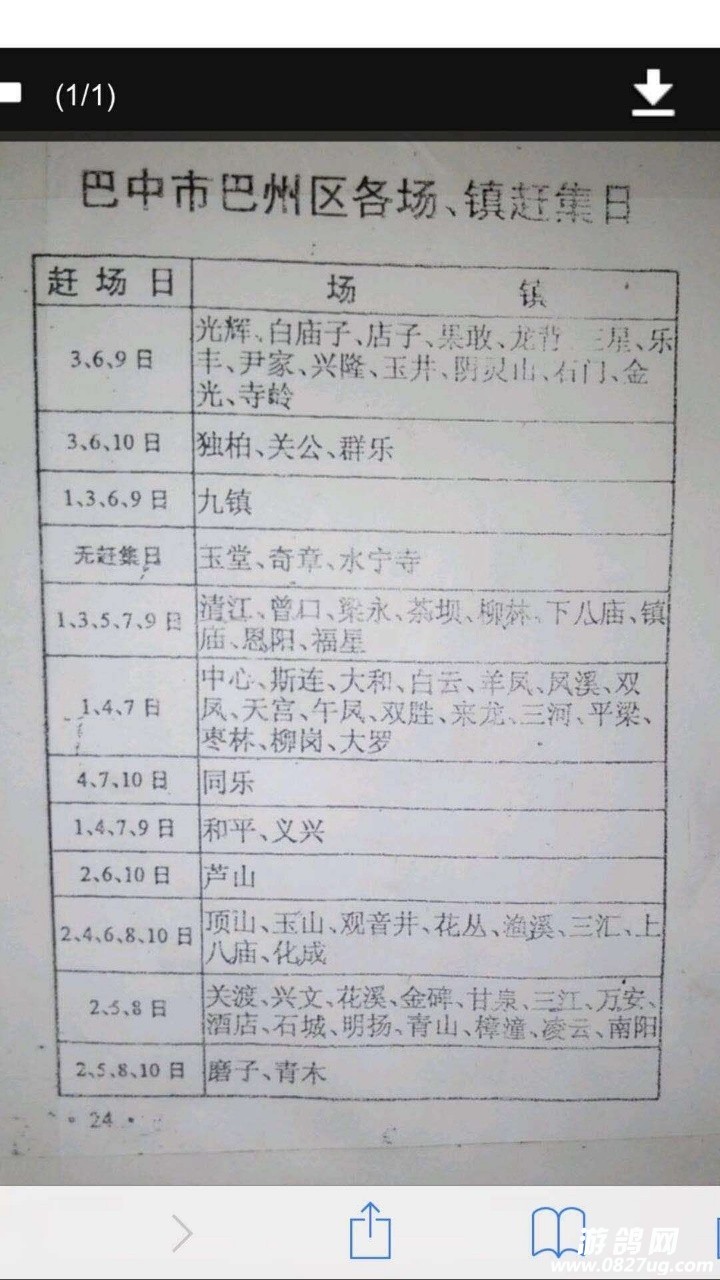 (1/1)
巴中市巴州区各场、镇赶集日
赶场日 场镇
3、6、9日 光辉、白庙子、店子、果敢、龙背、三星、乐
丰、尹家、兴隆、玉井、阴灵山、石门、金
光、寺岭
3、6、10日 独柏、关公、群乐
1、3、6、9日 九镇
无赶集日 玉堂、奇章、水宁寺
1、3、5、7、9日 清江、曾口、梁永、茶坝、柳林、下八庙、镇
庙、恩阳、福星
1、4、7日 中心、斯连、大和、白云、羊凤、凤溪、双
凤、天宫、午凤、双胜、来龙、三河、平梁、
枣林、柳岗、大罗
4、7、10日 同乐
1、4、7、9日 和平、义兴
2、6、10日 芦山
2、4、6、8、10日 顶山、玉山、观音井、花丛、渔溪、三汇、上
八庙、化成
2、5、8日 关渡、兴文、花溪、金碑、甘泉、三江、万安、
酒店、石城、明扬、青山、樟潼、凌云、南阳
2、5、8、10日 磨子、青木
· 24 ·
游鸽网
www.0827ug.com